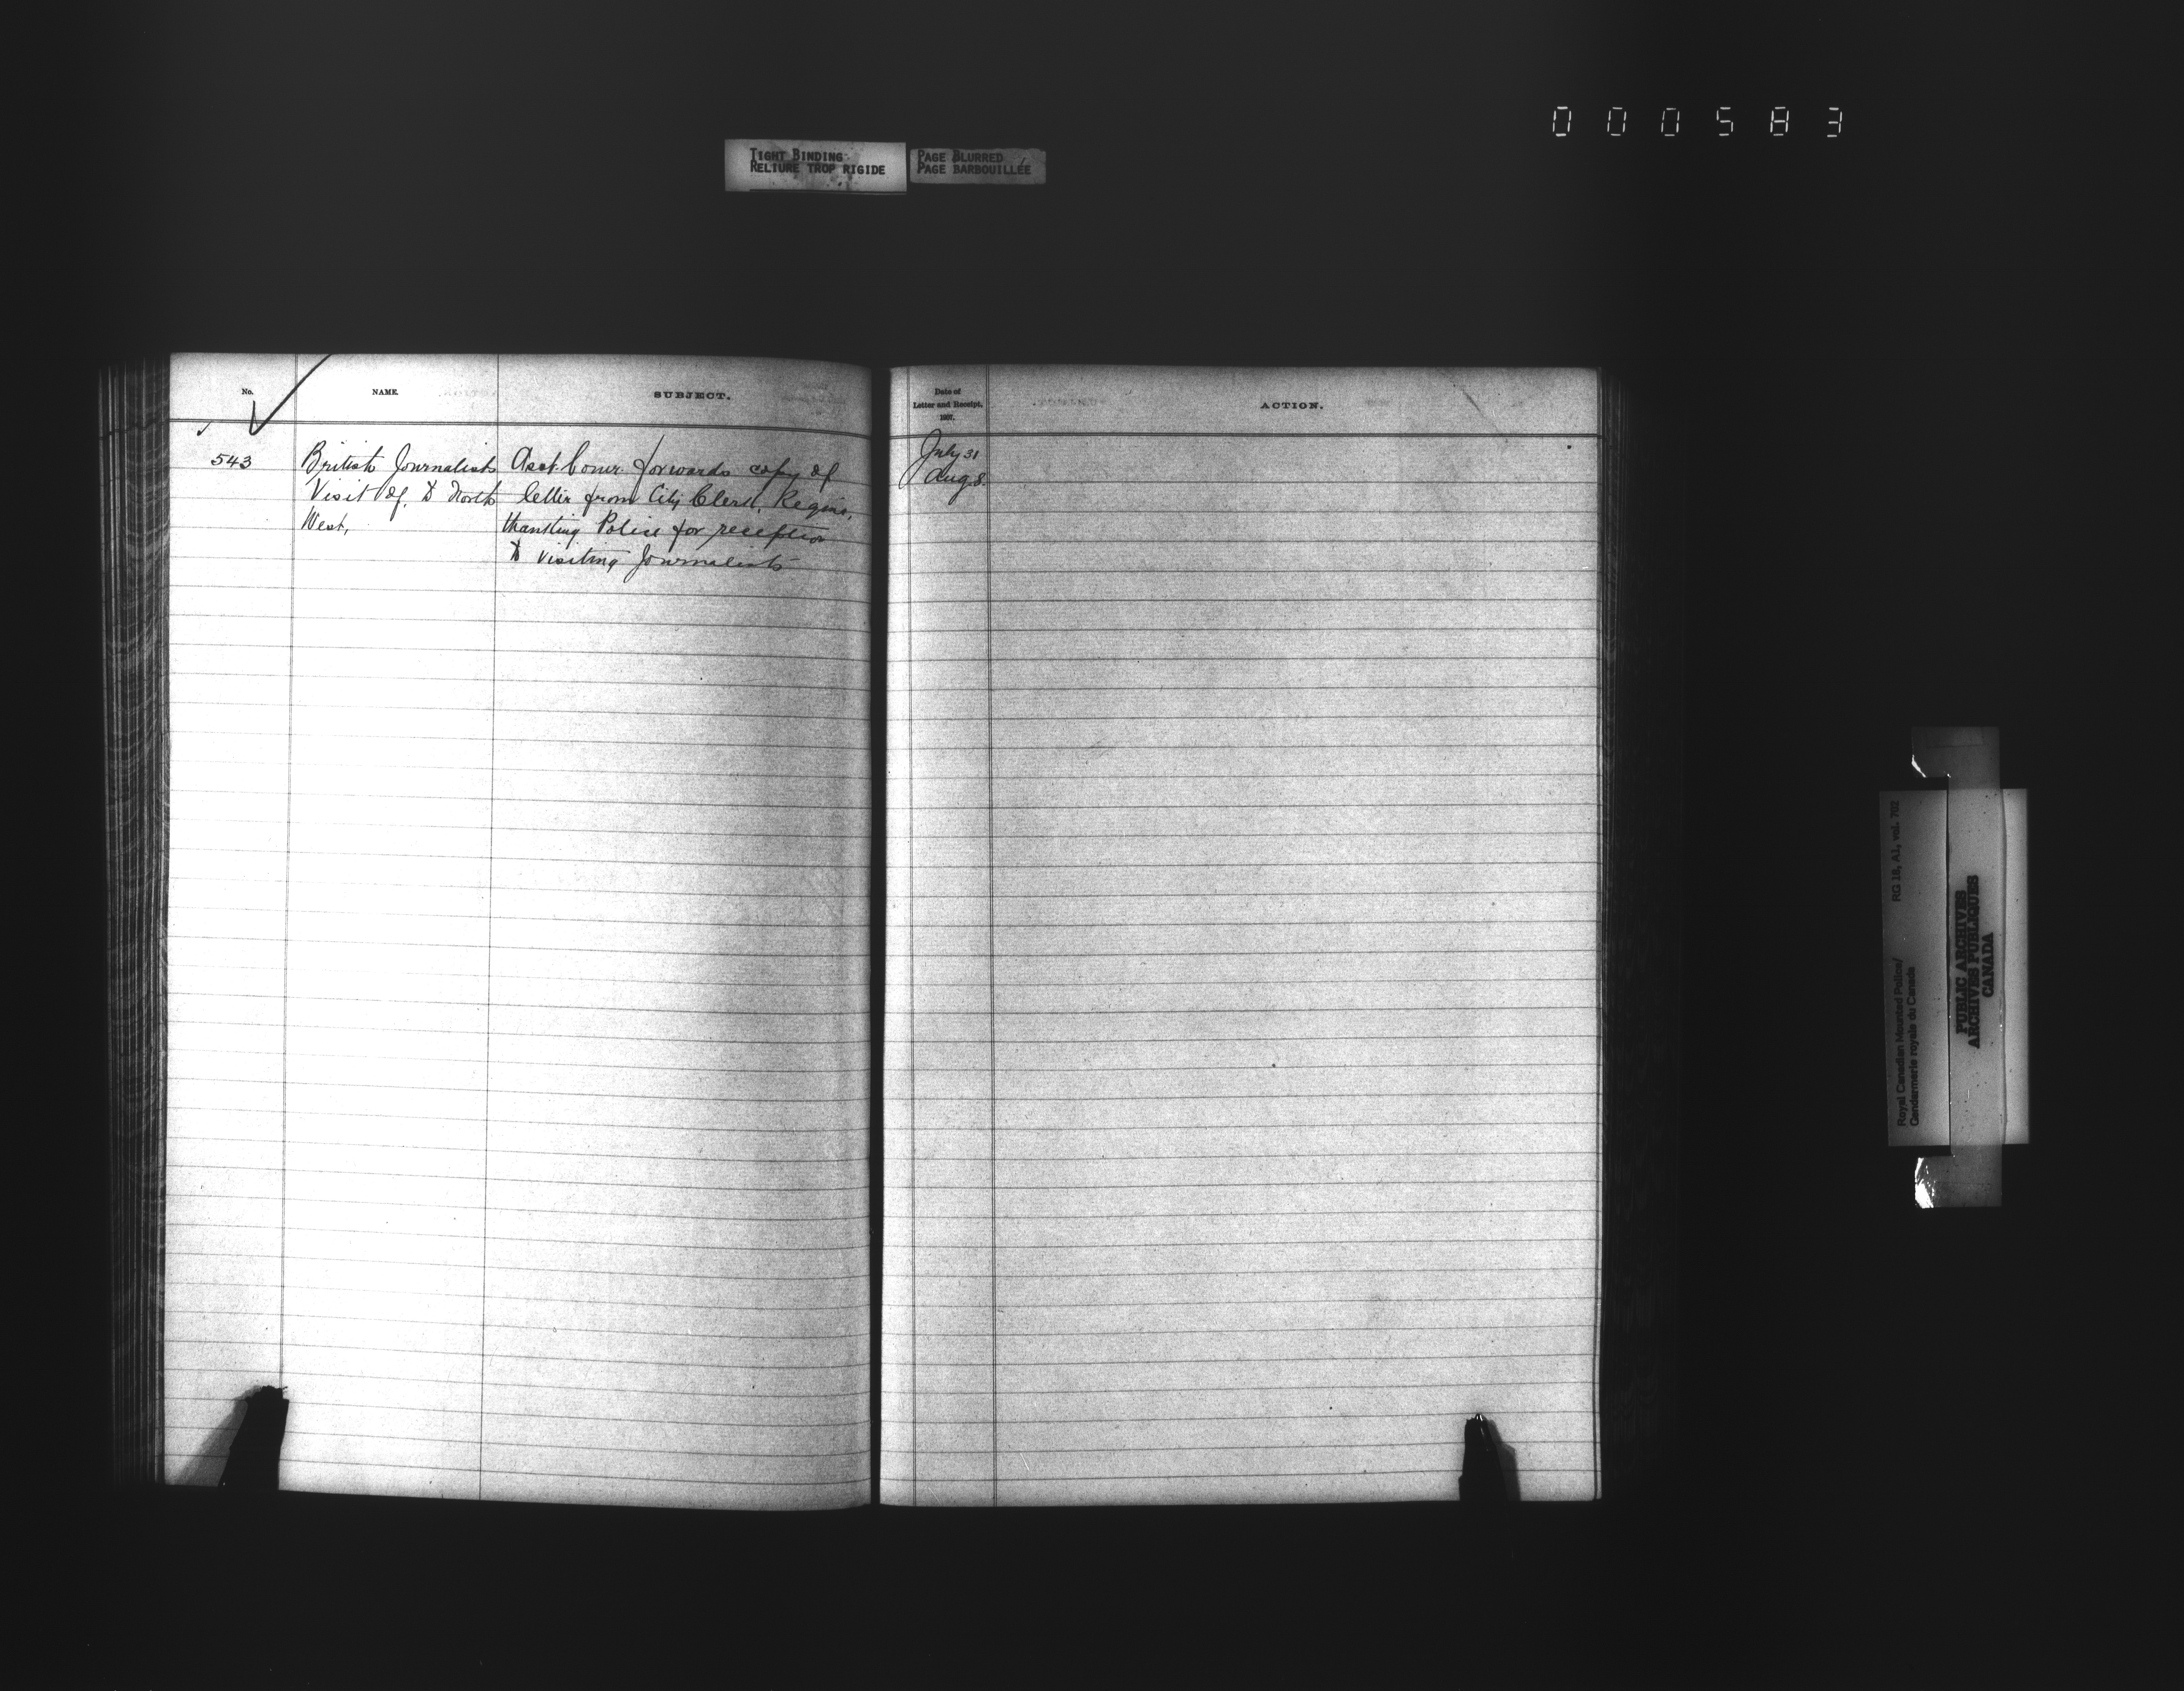 000583
TIGHT BINDING
RELIURE TROP RIGIDE
PAGE BLURRED
PAGE BARBOUILLÉE
No.
NAME.
SUBJECT.
543
British Journalists
Visit of, to North
West,
Asst. Comr. forwards copy of
letter from City Clerk, Regina,
thanking Police for reception
to visiting Journalists
Date of
Letter and Receipt.
1907.
ACTION.
July 31
Aug. 8.
Royal Canadian Mounted Police/
Gendarmerie royale du Canada
RG 18, A1, vol. 702
PUBLIC ARCHIVES
ARCHIVES PUBLIQUES
CANADA